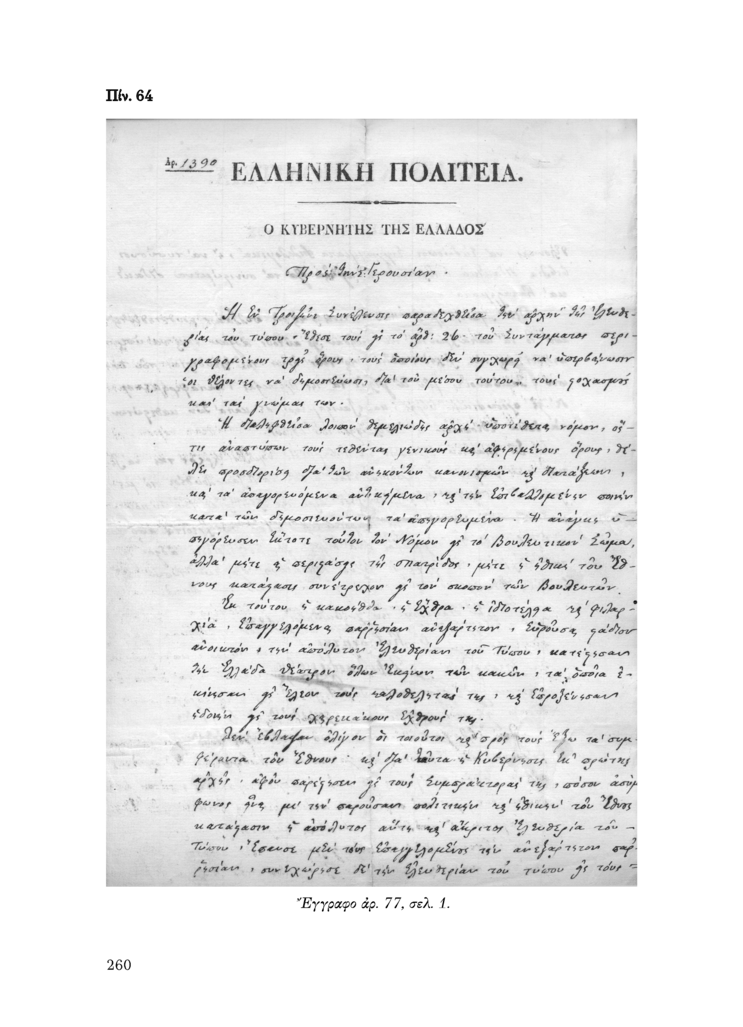 Πίν. 64
Ἀρ. 1390
ΕΛΛΗΝΙΚΗ ΠΟΛΙΤΕΙΑ.
Ο ΚΥΒΕΡΝΗΤΗΣ ΤΗΣ ΕΛΛΑΔΟΣ
Πρὸς τὴν Γερουσίαν.
Ἡ ἐν Τροιζῆνι Συνέλευσις παραδεχθεῖσα τὴν ἀρχὴν τῆς Ἐλευθε-
ρίας τοῦ τύπου ἔθεσε τοὺς εἰς τὸ ἄρθ: 26 τοῦ Συντάγματος περι-
γραφομένους ὅρους, τοὺς ὁποίους δὲν συγχωρεῖ νὰ ὑπερβαίνωσιν
οἱ θέλοντες νὰ δημοσιεύωσι διὰ τοῦ μέσου τούτου τοὺς στοχασμοὺς
καὶ τὰς γνώμας των.
Ἡ διαληφθεῖσα λοιπὸν θεμελιώδης ἀρχὴ ὑποτίθεται νόμον, ὅς-
τις ἀναπτύσσων τοὺς τεθέντας γενικοὺς καὶ ὅρους, θέ-
λει προσδιορίσῃ διὰ τῶν ἀνηκόντων κανονισμῶν καὶ διατάξεων,
καὶ τὰ ἀπαγορευόμενα ἀντικείμενα, καὶ τὴν ἐπιβαλλομένην ποινὴν
κατὰ τῶν δημοσιευόντων τὰ ἀπηγορευμένα. Ἡ ἀνάγκη ὑ-
πηγόρευσεν ἔκτοτε τοῦτον τὸν Νόμον εἰς τὸ Βουλευτικὸν Σῶμα,
ἀλλὰ μήτε αἱ περιστάσεις τῆς πατρίδος, μήτε ἡ ἠθικὴ τοῦ Ἔθ-
νους κατάστασις συνέτρεχον εἰς τὸν σκοπὸν τῶν Βουλευτῶν.
Ἐκ τούτου ἡ κακοήθεια, ἡ ἔχθρα, ἡ ἰδιοτέλεια καὶ φιλαρ-
χία, ἐπαγγελόμεναι παῤῥησίαν ἀνεξάρτητον, εὑροῦσαι στάδιον
ἀνοικτὸν τὴν ἀπόλυτον Ἐλευθερίαν τοῦ Τύπου, κατέστησαν
τὴν Ἑλλάδα θέατρον ὅλων ἐκείνων τῶν κακῶν, τὰ ὁποῖα ἐ-
κίνησαν εἰς ἔλεον τοὺς καλοθελητάς της, καὶ ἐπροξένησαν
ἡδονὴν εἰς τοὺς χαιρεκάκους ἐχθρούς της.
Δὲν ἔβλαψαν ὀλίγον οἱ τοιοῦτοι καὶ πρὸς τοὺς ἔξω τὰ συμ-
φέροντα τοῦ Ἔθνους· καὶ διὰ ταῦτα ἡ Κυβέρνησις ἐκ πρώτης
ἀρχῆς, ἀφοῦ παρέστησεν εἰς τοὺς Συμπράκτοράς της, πόσον ἀσύμ-
φωνος ἦτο μὲ τὴν παροῦσαν πολιτικὴν καὶ ἠθικὴν τοῦ Ἔθνους
κατάστασιν ἡ ἀπόλυτος αὕτη καὶ ἄκριτος Ἐλευθερία τοῦ
Τύπου, ἔπαυσε μὲν τοὺς ἐπαγγελομένους τὴν ἀνεξάρτητον παῤ-
ῥησίαν, συνεχώρησε δὲ τὴν ἐλευθερίαν τοῦ τύπου εἰς τοὺς
Ἔγγραφο ἀρ. 77, σελ. 1.
260